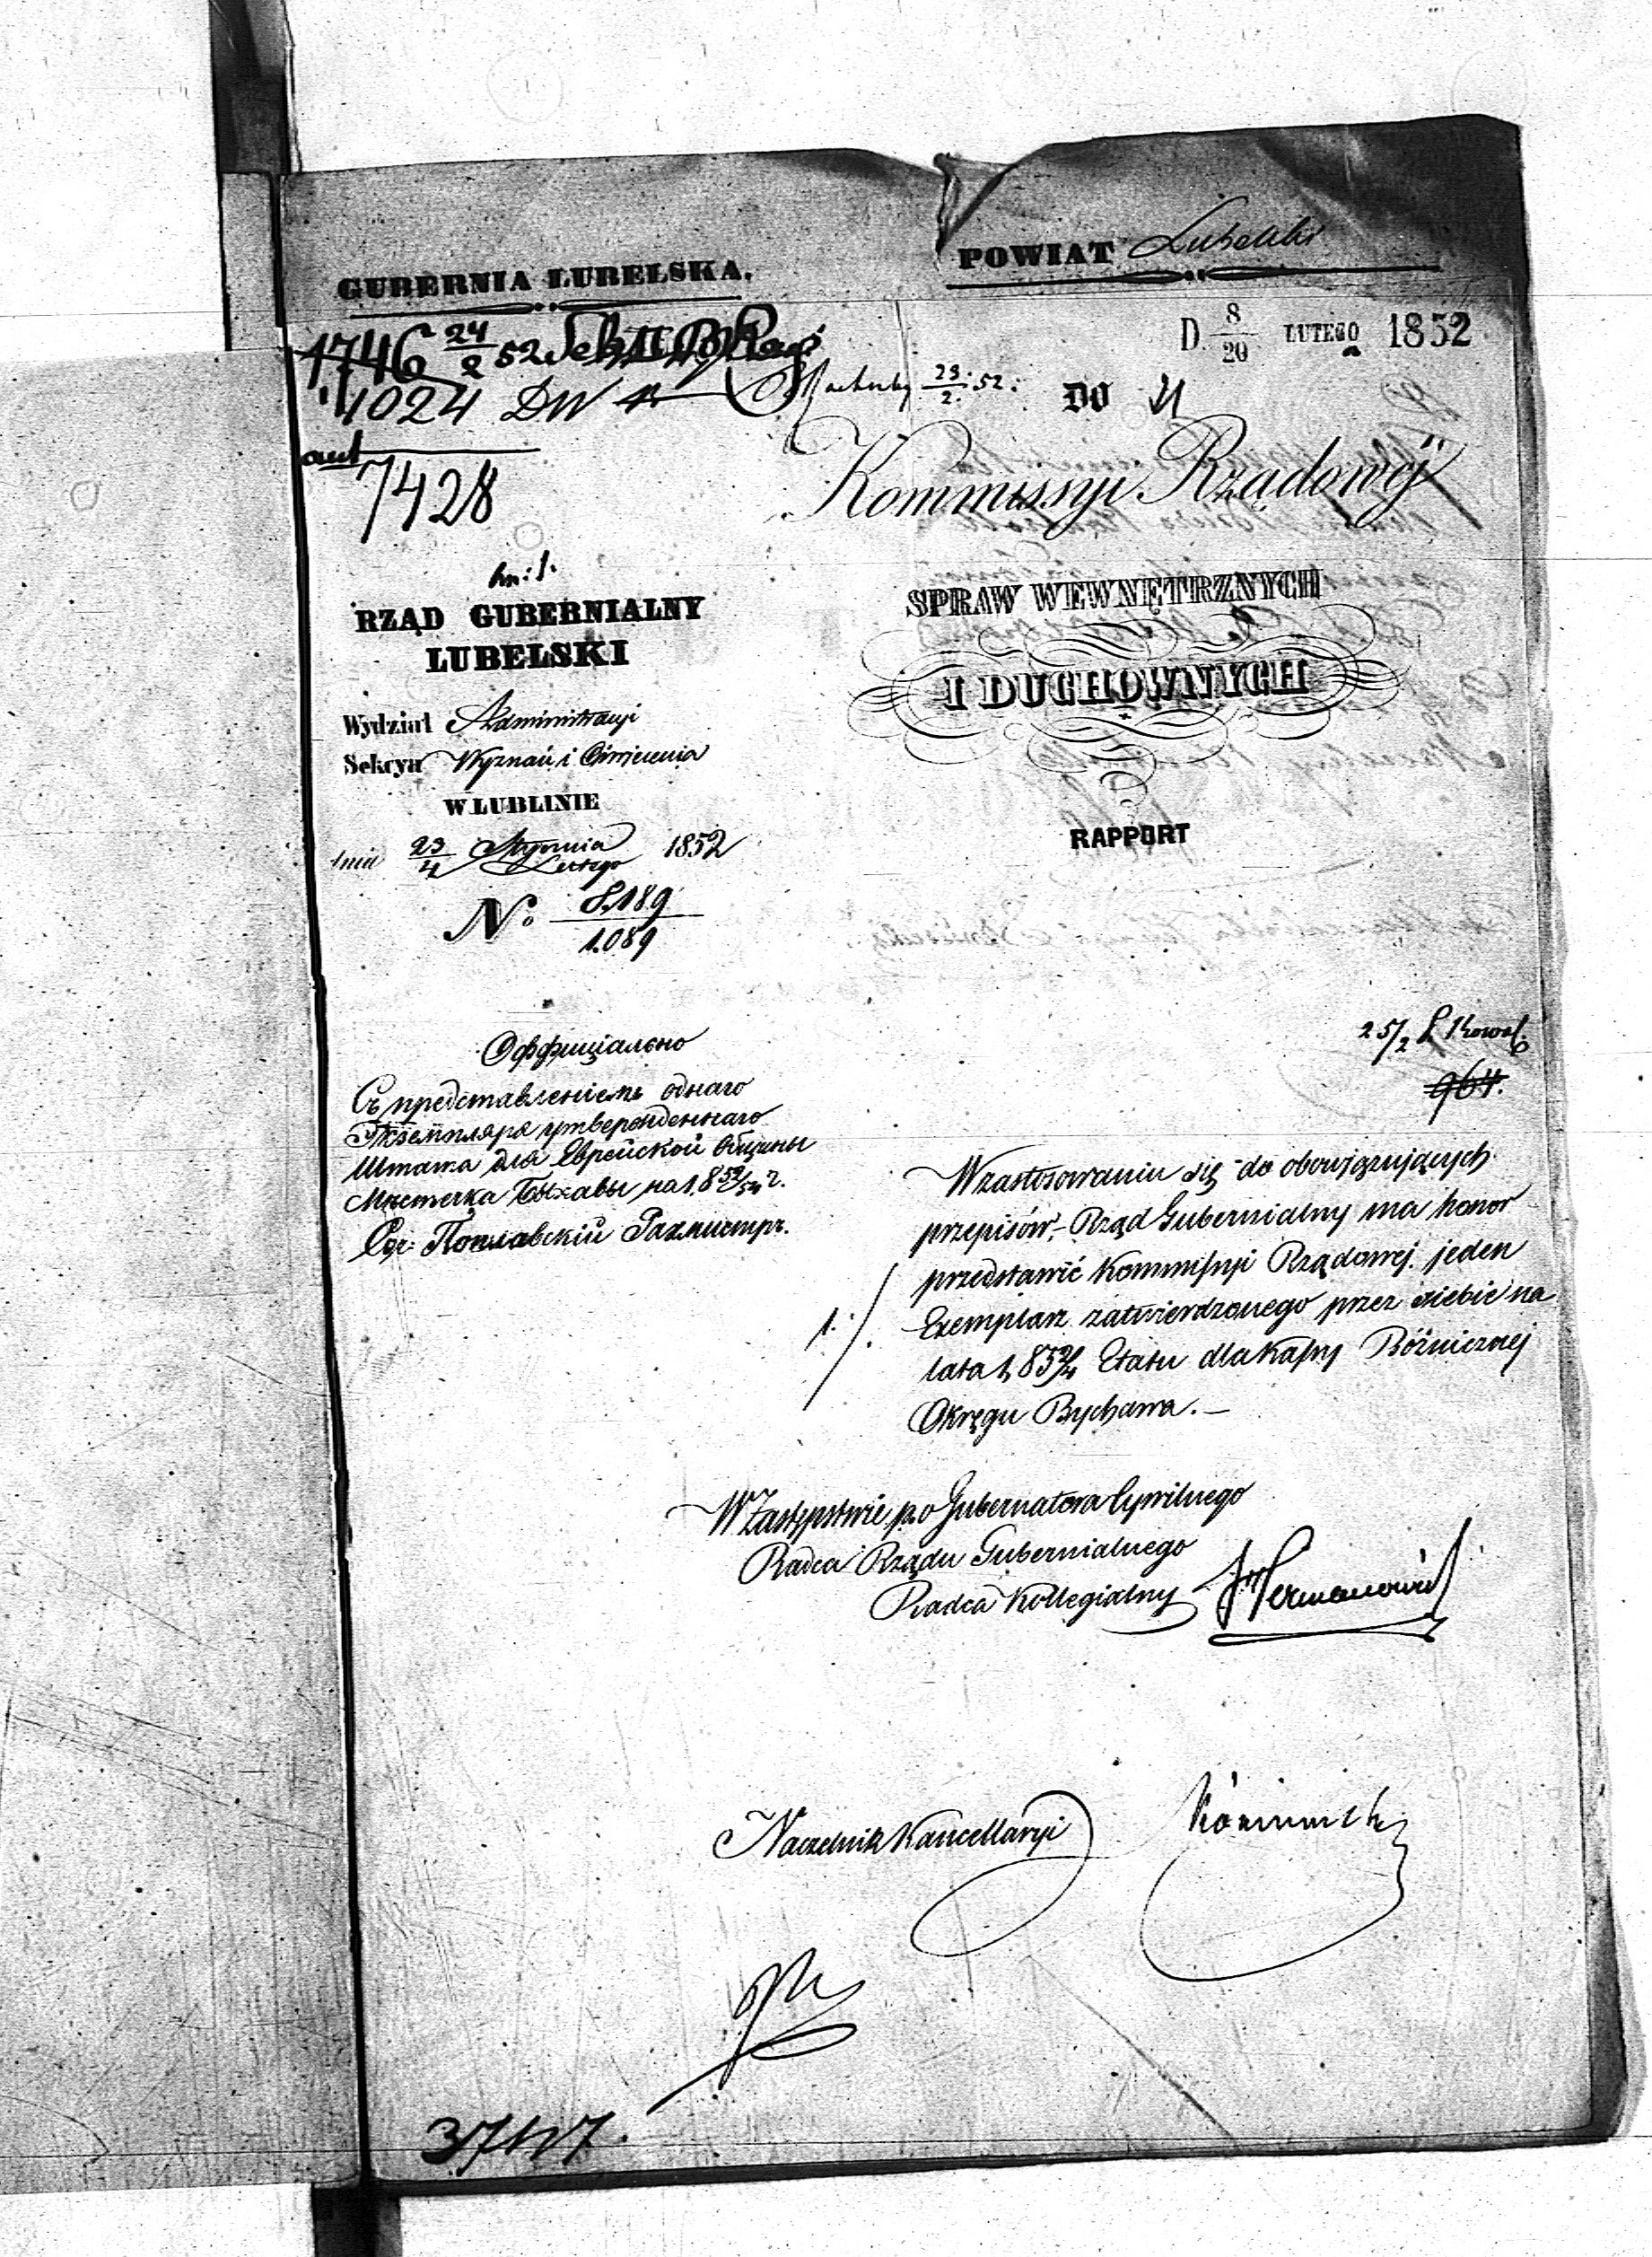 GUBERNIA LUBELSKA.
POWIAT Lubelski
1746 24/2 52
D. 8/20 LUTEGO 1852
1024 DW
23/2 52.
DO
7428
Kommissyi Rządowéj
RZĄD GUBERNIALNY
LUBELSKI
SPRAW WEWNĘTRZNYCH
I DUCHOWNYCH
Wydział Administracyi
Sekcya Wyznań i Oświecenia
W LUBLINIE
dnia 23/4 Stycznia/Lutego 1852
RAPPORT
No. 8,189/1.089
25/2
964.
Оффиціально
Съ представленіемъ однаго
Экземпляра утвержденнаго
Штата для Еврейской общины
Мѣстечка Быхавы на 1852/54 г.
Поплавскій
W zastosowaniu się do obowiązujących
przepisów, Rząd Gubernialny ma honor
przedstawić Kommissyi Rządowej jeden
Exemplarz zatwierdzonego przez siebie na
lata 1852/4 Etatu dla Kassy Bóżniczej
Okręgu Bychawa. —
1.
W Zastępstwie p.o Gubernatora Cywilnego
Radca Rządu Gubernialnego
Radca Kollegialny Hermanowicz
Naczelnik Kancellaryi